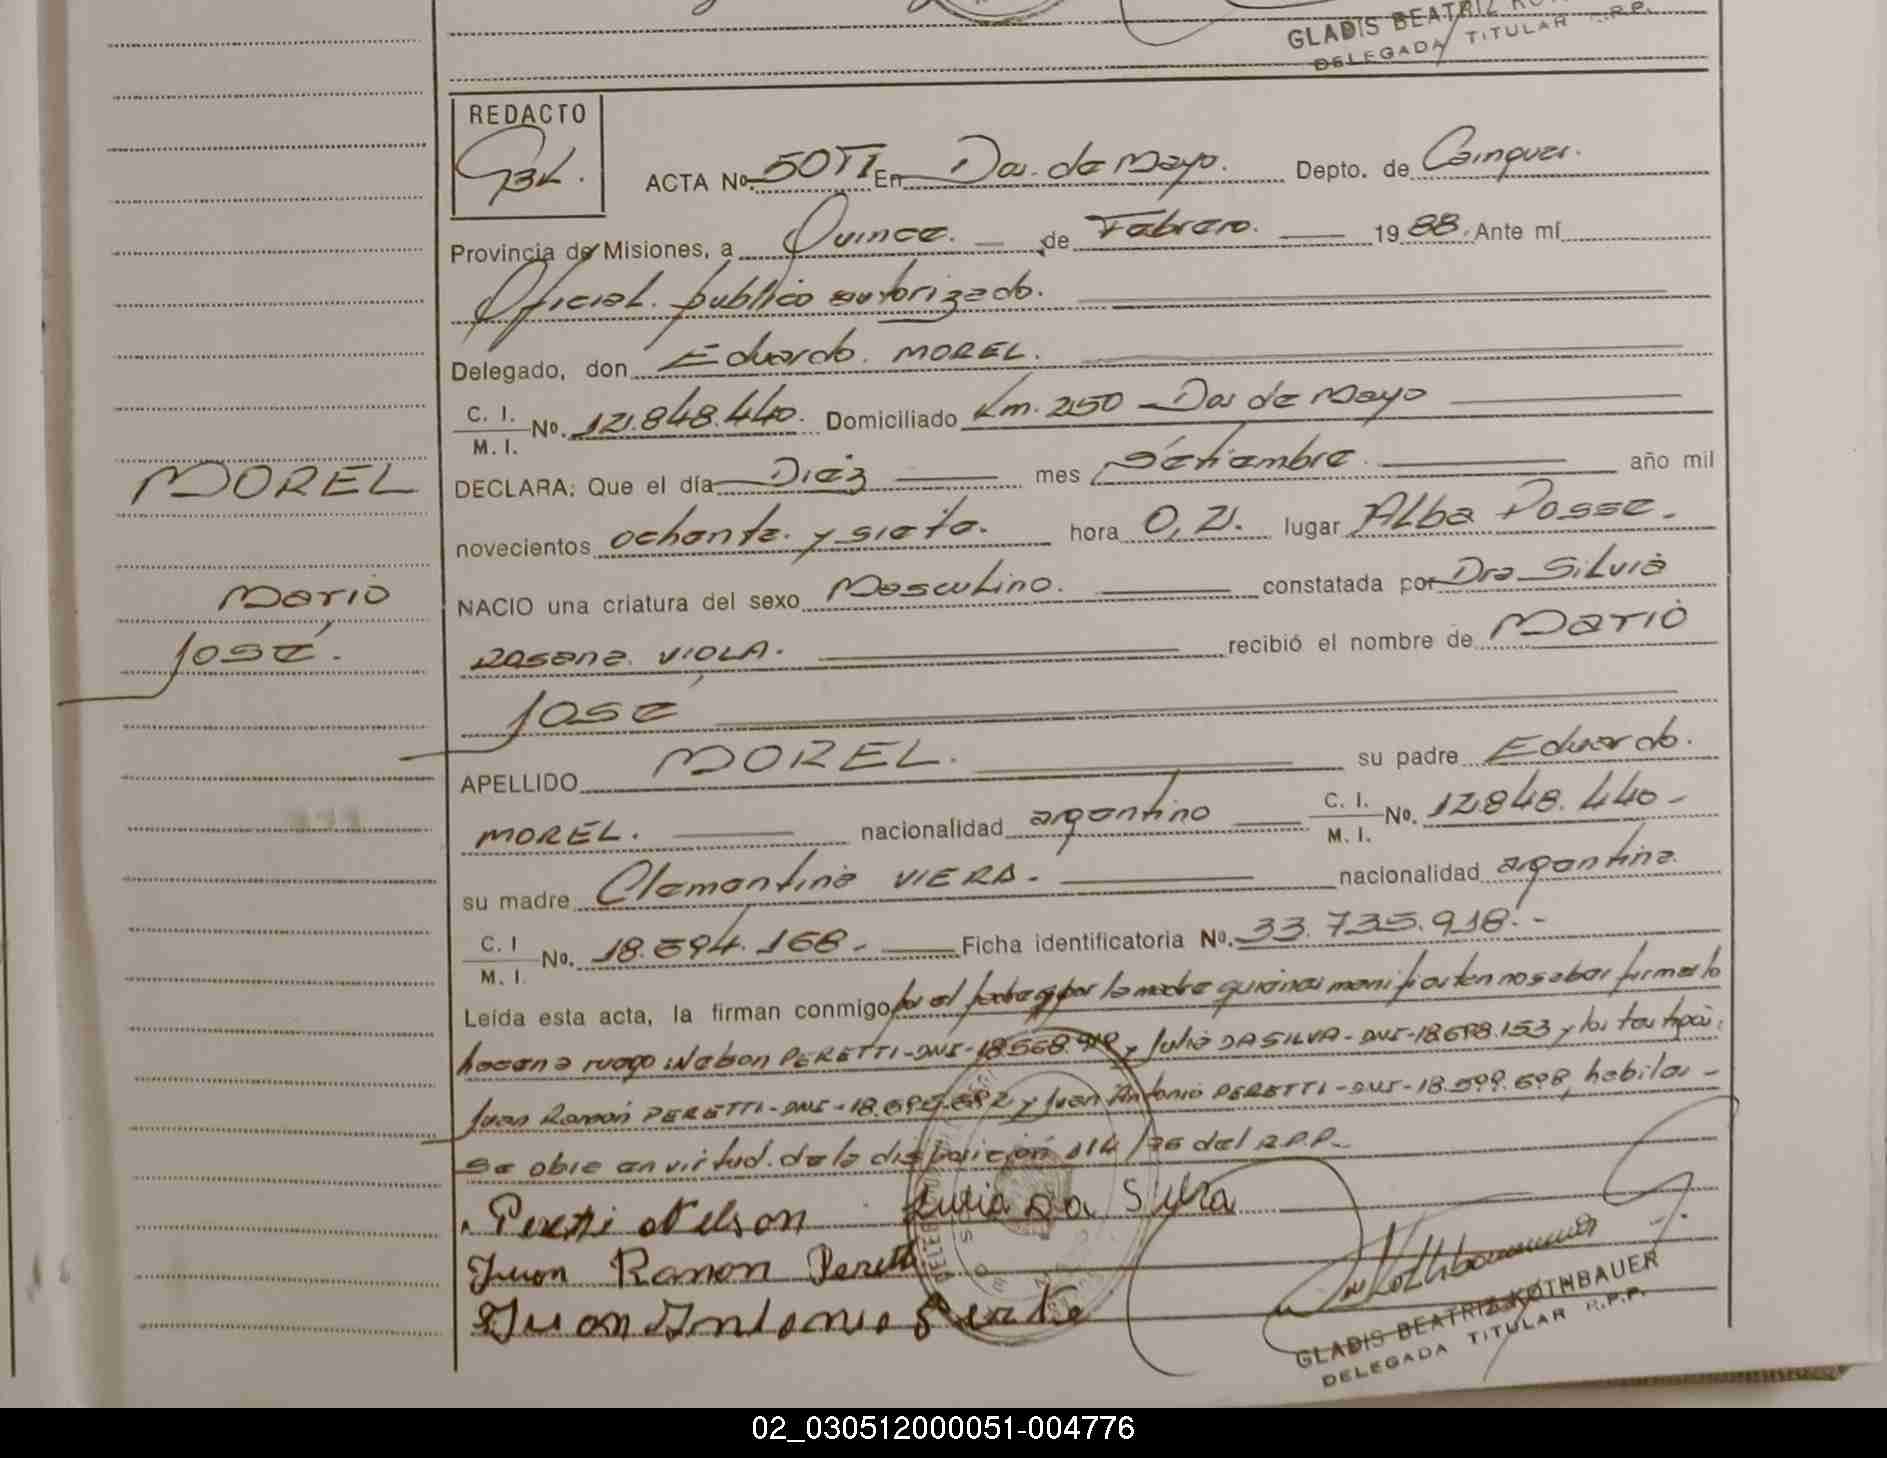 GLADIS BEATRIZ
DELEGADA TITULAR R.P.P.
REDACTO
ACTA No. 50 TI En Dos de Mayo. Depto. de Cainguas.
Provincia de Misiones, a Quince. de Febrero. 1988. Ante mí
Oficial público autorizado.
Delegado, don Eduardo MOREL.
C. I.
M. I.
No. 12.848.440. Domiciliado Km. 250 - Dos de Mayo
MOREL
DECLARA: Que el día Diéz mes Sétiembre. año mil
novecientos ochenta y siete. hora 0,21. lugar Alba Posse.
Mario
José.
NACIO una criatura del sexo Masculino. constatada por Dra Silvia
Rosana VIOLA. recibió el nombre de Mario
José
APELLIDO MOREL. su padre Eduardo.
MOREL. nacionalidad argentino C. I.
M. I.
No. 12.848.440-
su madre Clementina VIERA. nacionalidad argentina.
C. I
M. I.
No. 18.694.168- Ficha identificatoria No. 33.735.918.-
Leída esta acta, la firman conmigo por el padre y por la madre quienes manifiesten no saber firmar lo
hacen a ruego Nelson PERETTI-DNI-18.568. y Julia DA SILVA-DNI-18.698.153 y los testigos:
Juan Ramón PERETTI-DNI- y Juan Antonio PERETTI-DNI-18.599.698, habilos-
se obre en virtud. de la disposición 114/76 del R.P.P.-
Peretti Nelson Julia Da Silva
Juan Ramon Peretti
Juan Antonio Peretti
GLADIS BEATRIZ KOTHBAUER
DELEGADA TITULAR R.P.P.
02_030512000051-004776